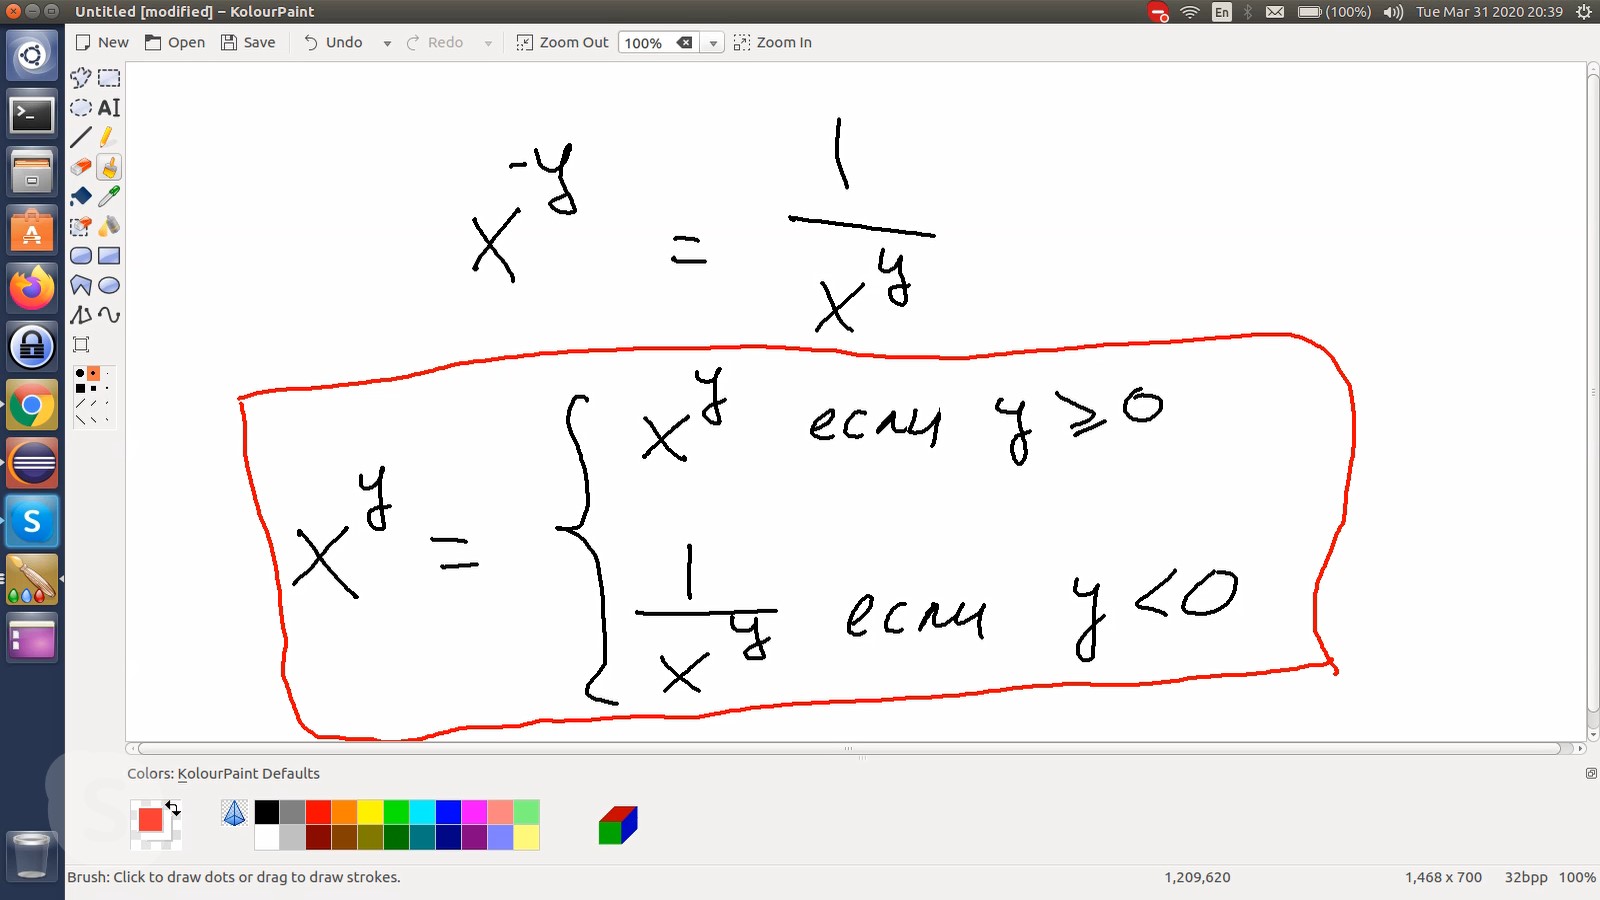 Untitled [modified] – KolourPaint
En
(100%)
Tue Mar 31 2020 20:39
New Open Save Undo Redo Zoom Out 100% Zoom In
x^-y = 1/x^y
x^y = { x^y если y ⩾ 0
1/x^y если y < 0
Colors: KolourPaint Defaults
Brush: Click to draw dots or drag to draw strokes.
1,209,620
1,468 x 700
32bpp
100%